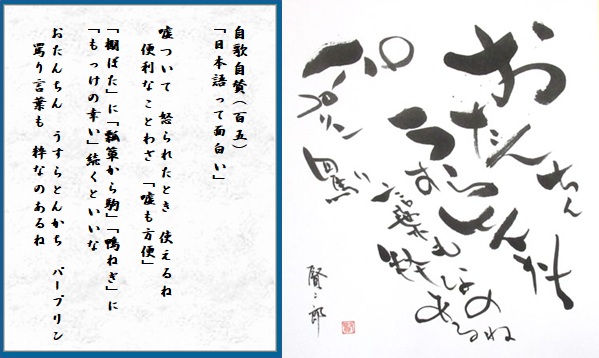 自歌自賛(百五)
「日本語って面白い」
嘘ついて 怒られたとき 使えるね
便利なことわざ 「嘘も方便」
「棚ぼた」に「瓢箪から駒」「鴨ねぎ」に
「もっけの幸い」続くといいな
おたんちん うすらとんかち パープリン
罵り言葉も 粋なのあるね
おたんちん
うすらとんかち
パープリン
罵り
言葉も
粋なの
あるね
賢二郎